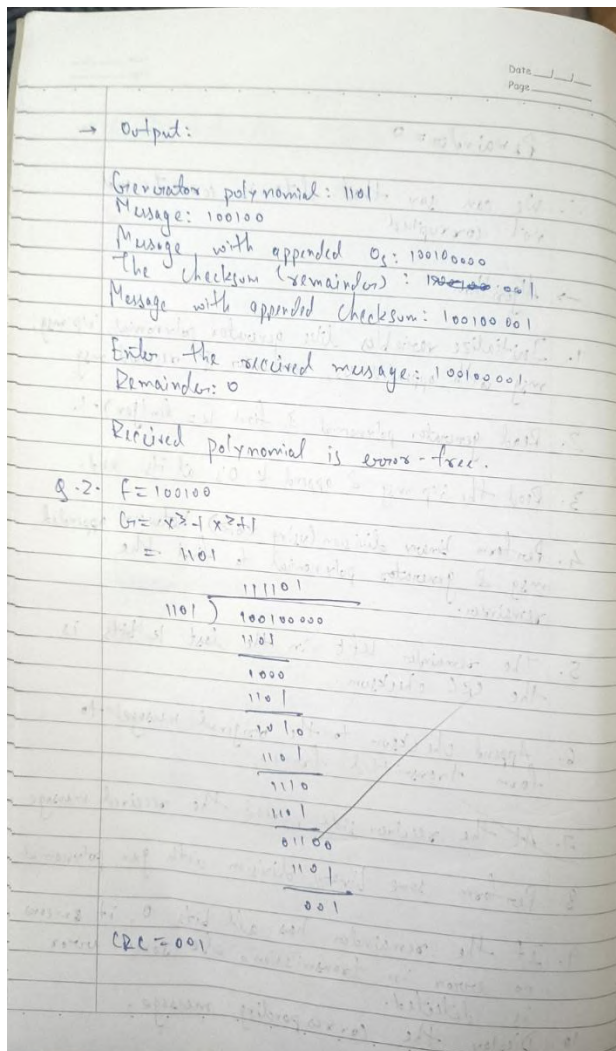 Date
Page
→ Output:
Generator polynomial: 1101
Message: 100100
Message with appended 0s: 100100000
The checksum (remainder): 001
Message with appended checksum: 100100 001
Enter the received message: 100100001
Remainder: 0
Received polynomial is error-free.
Q.2. F = 100100
G = x³+x²+1
= 1101
111101
1101 ) 100100000
1101
1000
1101
1010
1101
1110
1101
01100
1101
001
CRC = 001